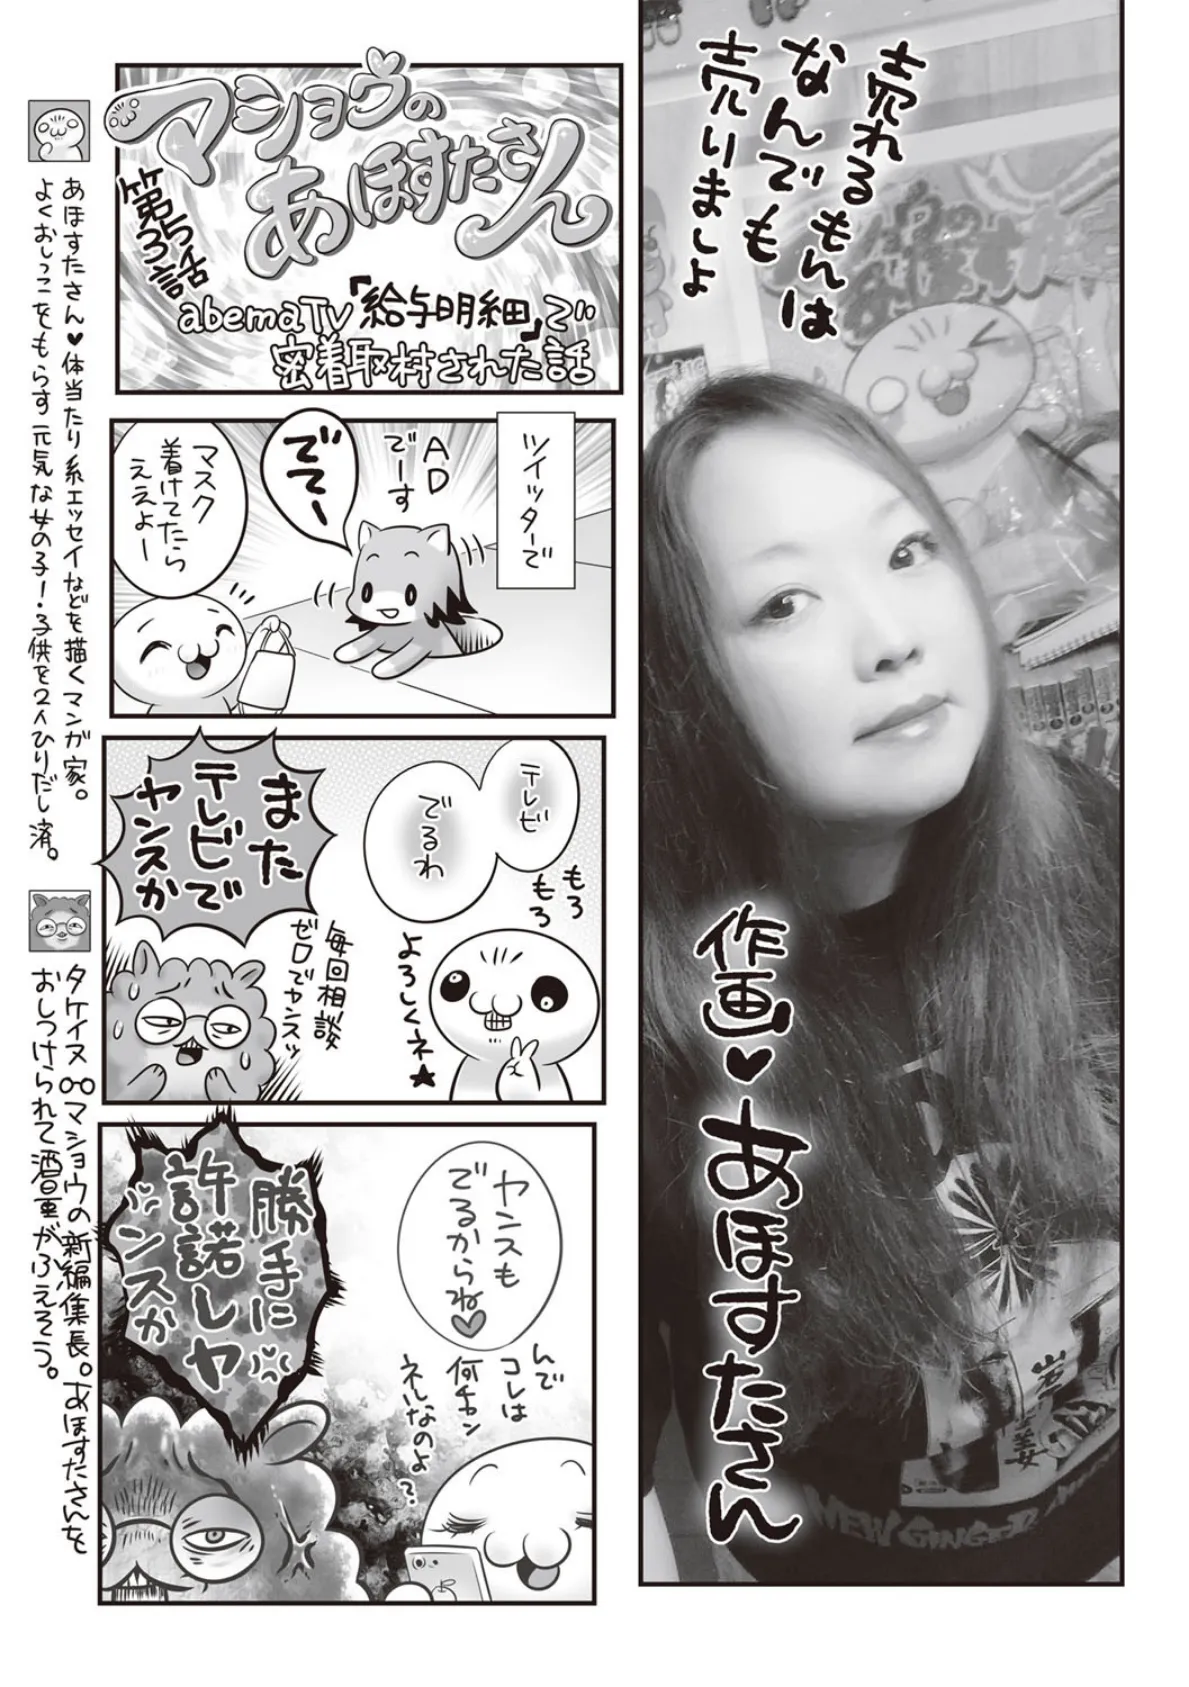 売れるもんは
なんでも
売りましょ
作画♥あほすたさん
マショウの
あほすたさん
第53話
abemaTV「給与明細」で
密着取材された話
ツイッターで
ADでーす
でてー
マスク
着けてたら
ええよー
テレビ
でるわ
もろ
もろ
よろしくネ★
また
テレビで
ヤンスか
毎回相談
ゼロでヤンスッ
ヤンスも
でるからね♡
んで
コレは
何チャン
ネルなのよ?
勝手に
許諾しヤ
ンスか
あほすたさん♥体当たり系エッセイなどを描くマンガ家。
よくおしっこをもらす元気な女の子!・子供を2人ひりだし済。
タケイヌ マショウの新編集長。あほすたさんを
おしつけられて酒量がふえそう。
岩下
姜
NEW GINGER